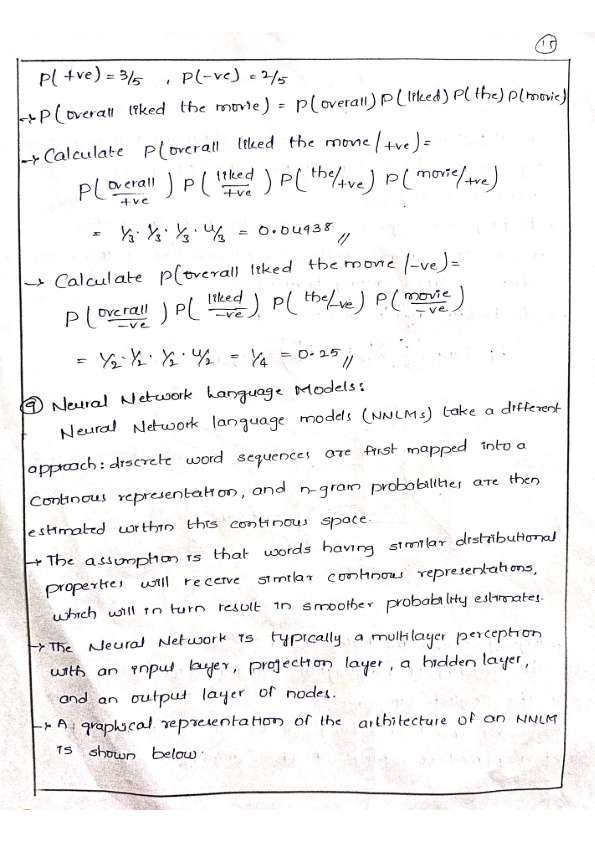 15
P(+ve) = 3/5 , P(-ve) = 2/5
→ P(overall liked the movie) = P(overall) P(liked) P(the) P(movie)
→ Calculate P(overall liked the movie/+ve) =
P(overall/+ve) P(liked/+ve) P(the/+ve) P(movie/+ve)
= 1/3 . 1/3 . 1/3 . 4/3 = 0.04938 //
→ Calculate P(overall liked the movie /-ve) =
P(overall/-ve) P(liked/-ve) P(the/-ve) P(movie/-ve)
= 1/2 . 1/2 . 1/2 . 4/2 = 1/4 = 0.25 //
9 Neural Network Language Models:
Neural Network language models (NNLMs) take a different
approach: discrete word sequences are first mapped into a
Continous representation, and n-gram probabilities are then
estimated within this continous space.
→ The assumption is that words having similar distributional
properties will receive similar continous representations,
which will in turn result in smoother probability estimates.
→ The Neural Network is typically a multilayer perception
with an input layer, projection layer, a hidden layer,
and an output layer of nodes.
→ A graphical representation of the arthitecture of an NNLM
is shown below.